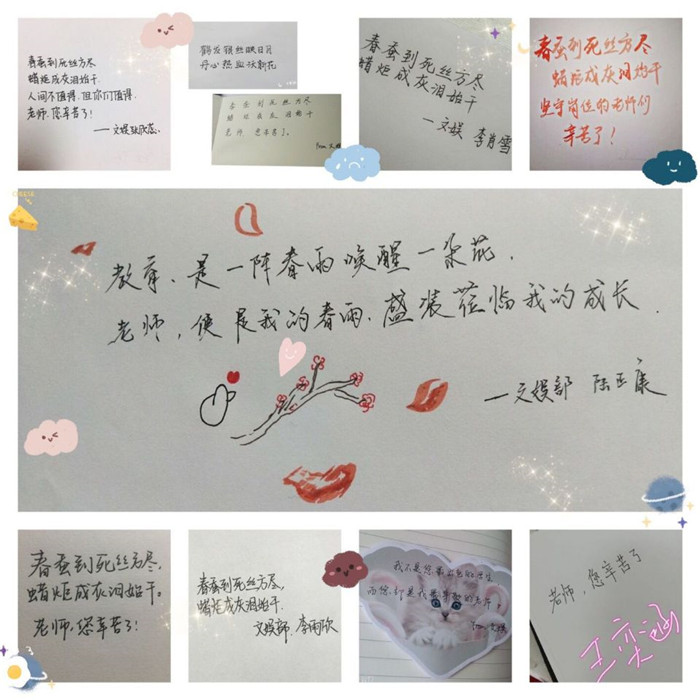 春蚕到死丝方尽
蜡炬成灰泪始干.
人间不值得.但你们值得.
老师.您辛苦了!
鹤发银丝映日月
丹心热血沃新花
春蚕到死丝方尽
蜡炬成灰泪始干
老师 您辛苦了。
春蚕到死丝方尽
蜡炬成灰泪始干
——文娱 李肖雪
春蚕到死丝方尽
蜡炬成灰泪始干
坚守岗位的老师们
辛苦了!
CHEESE
教育、是一阵春雨唤醒一朵花.
老师,便是我的春雨.盛装莅临我的成长.
—文娱部 陆正康
春蚕到死丝方尽,
蜡炬成灰泪始干。
老师,您辛苦了!
春蚕到死丝方尽,
蜡炬成灰泪始干.
文娱部.李雨欣
我不是您最出色的学生
而您却是我最尊敬的老师
老师,您辛苦了
王奕涵